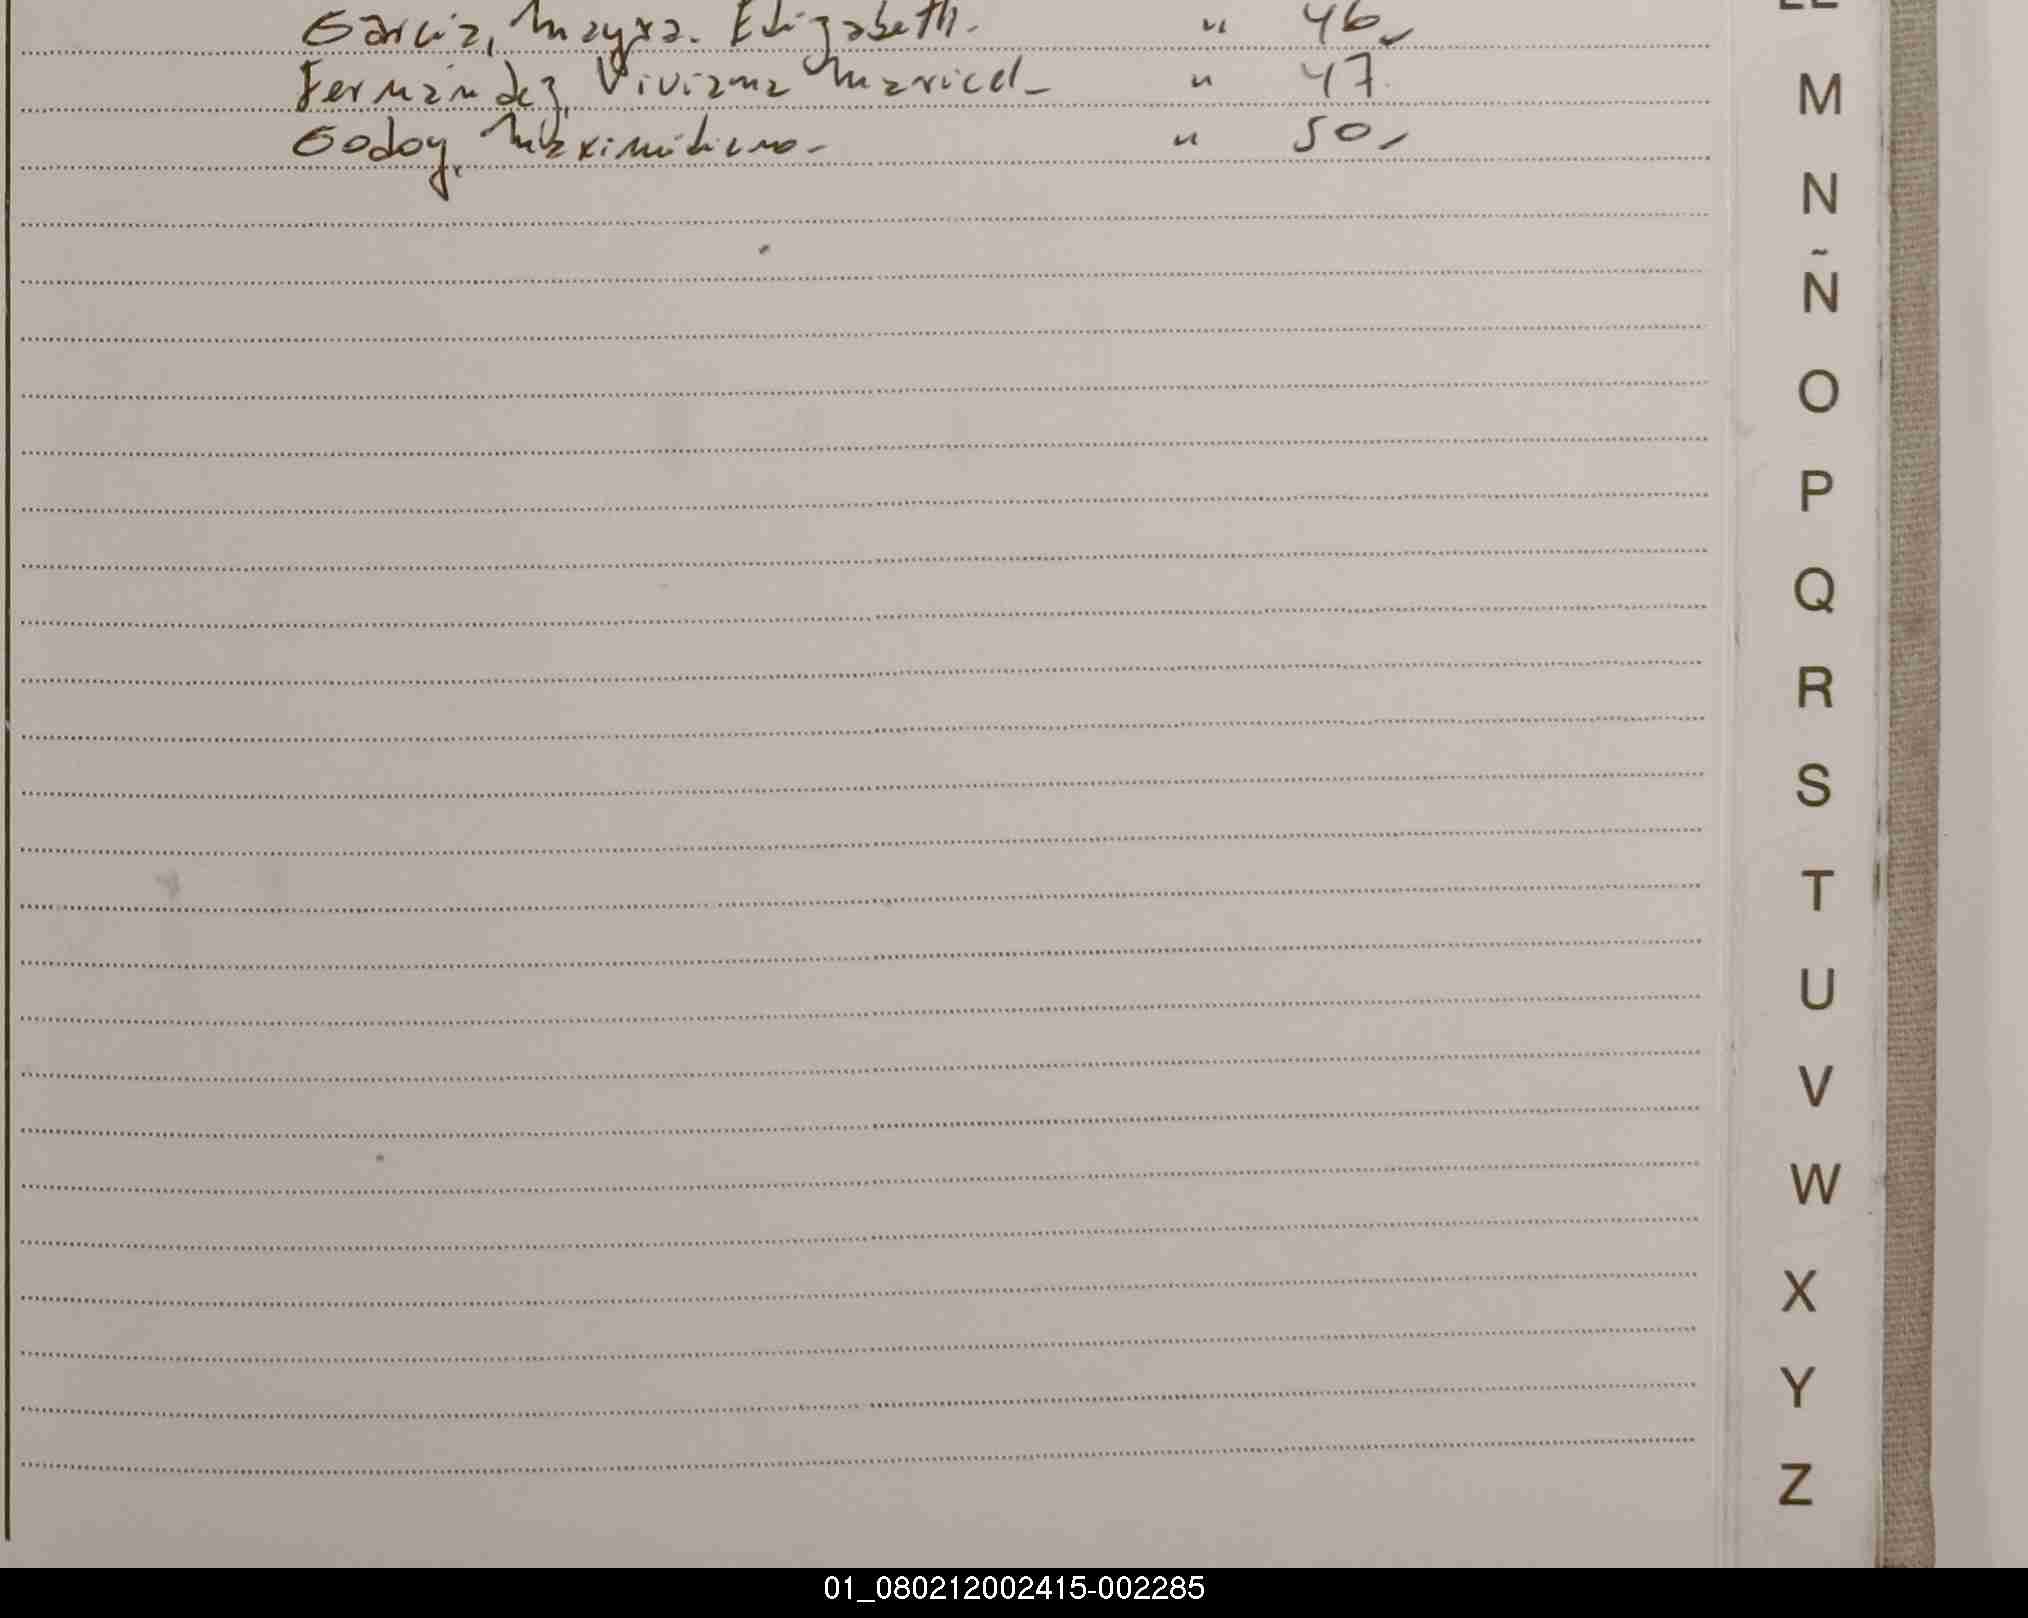 Garcia, Mayra. Elizabeth. " 46
Fernández, Viviana Maricel " 47.
Godoy, Maximiliano. " 50
LL
M
N
Ñ
O
P
Q
R
S
T
U
V
W
X
Y
Z
01_080212002415-002285